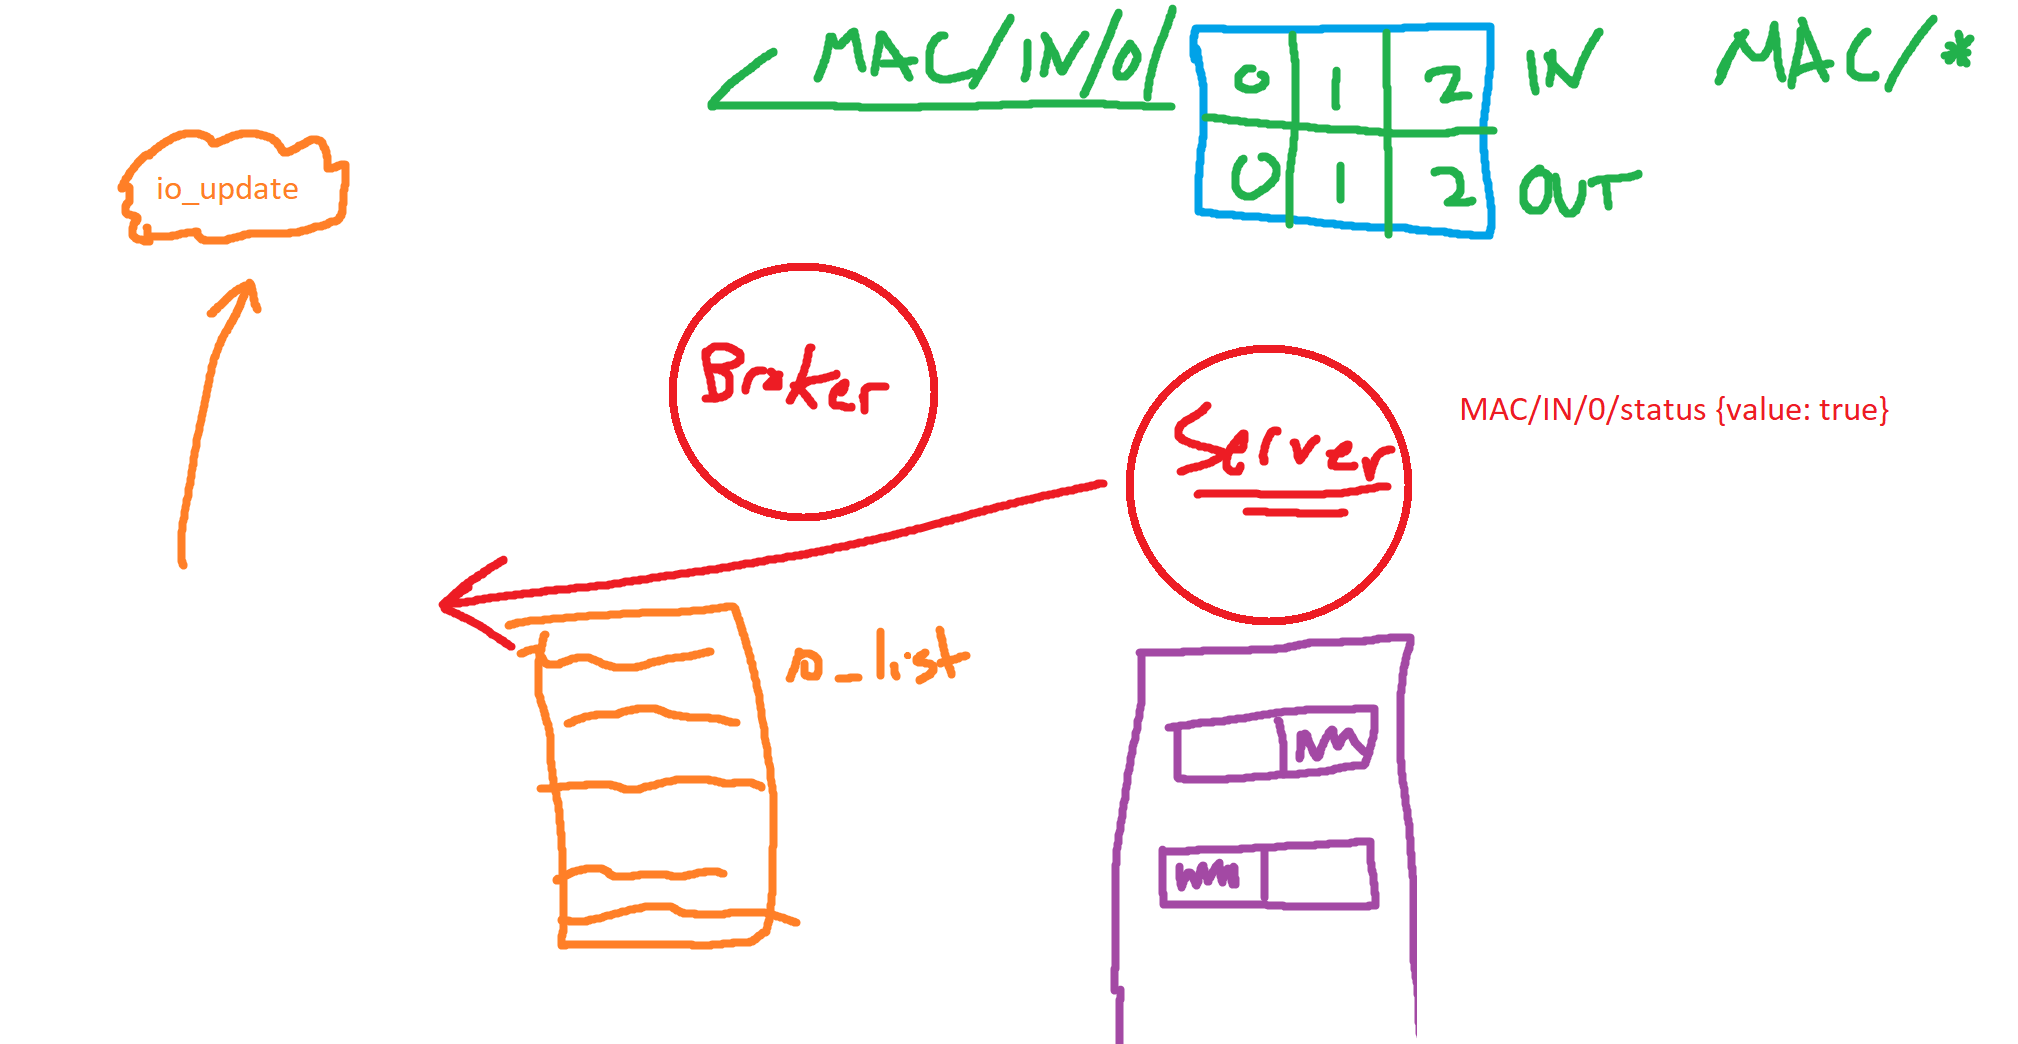 MAC/IN/0/
0 1 2 IN
MAC/*
0 1 2 OUT
io_update
Broker
Server
MAC/IN/0/status {value: true}
io_list